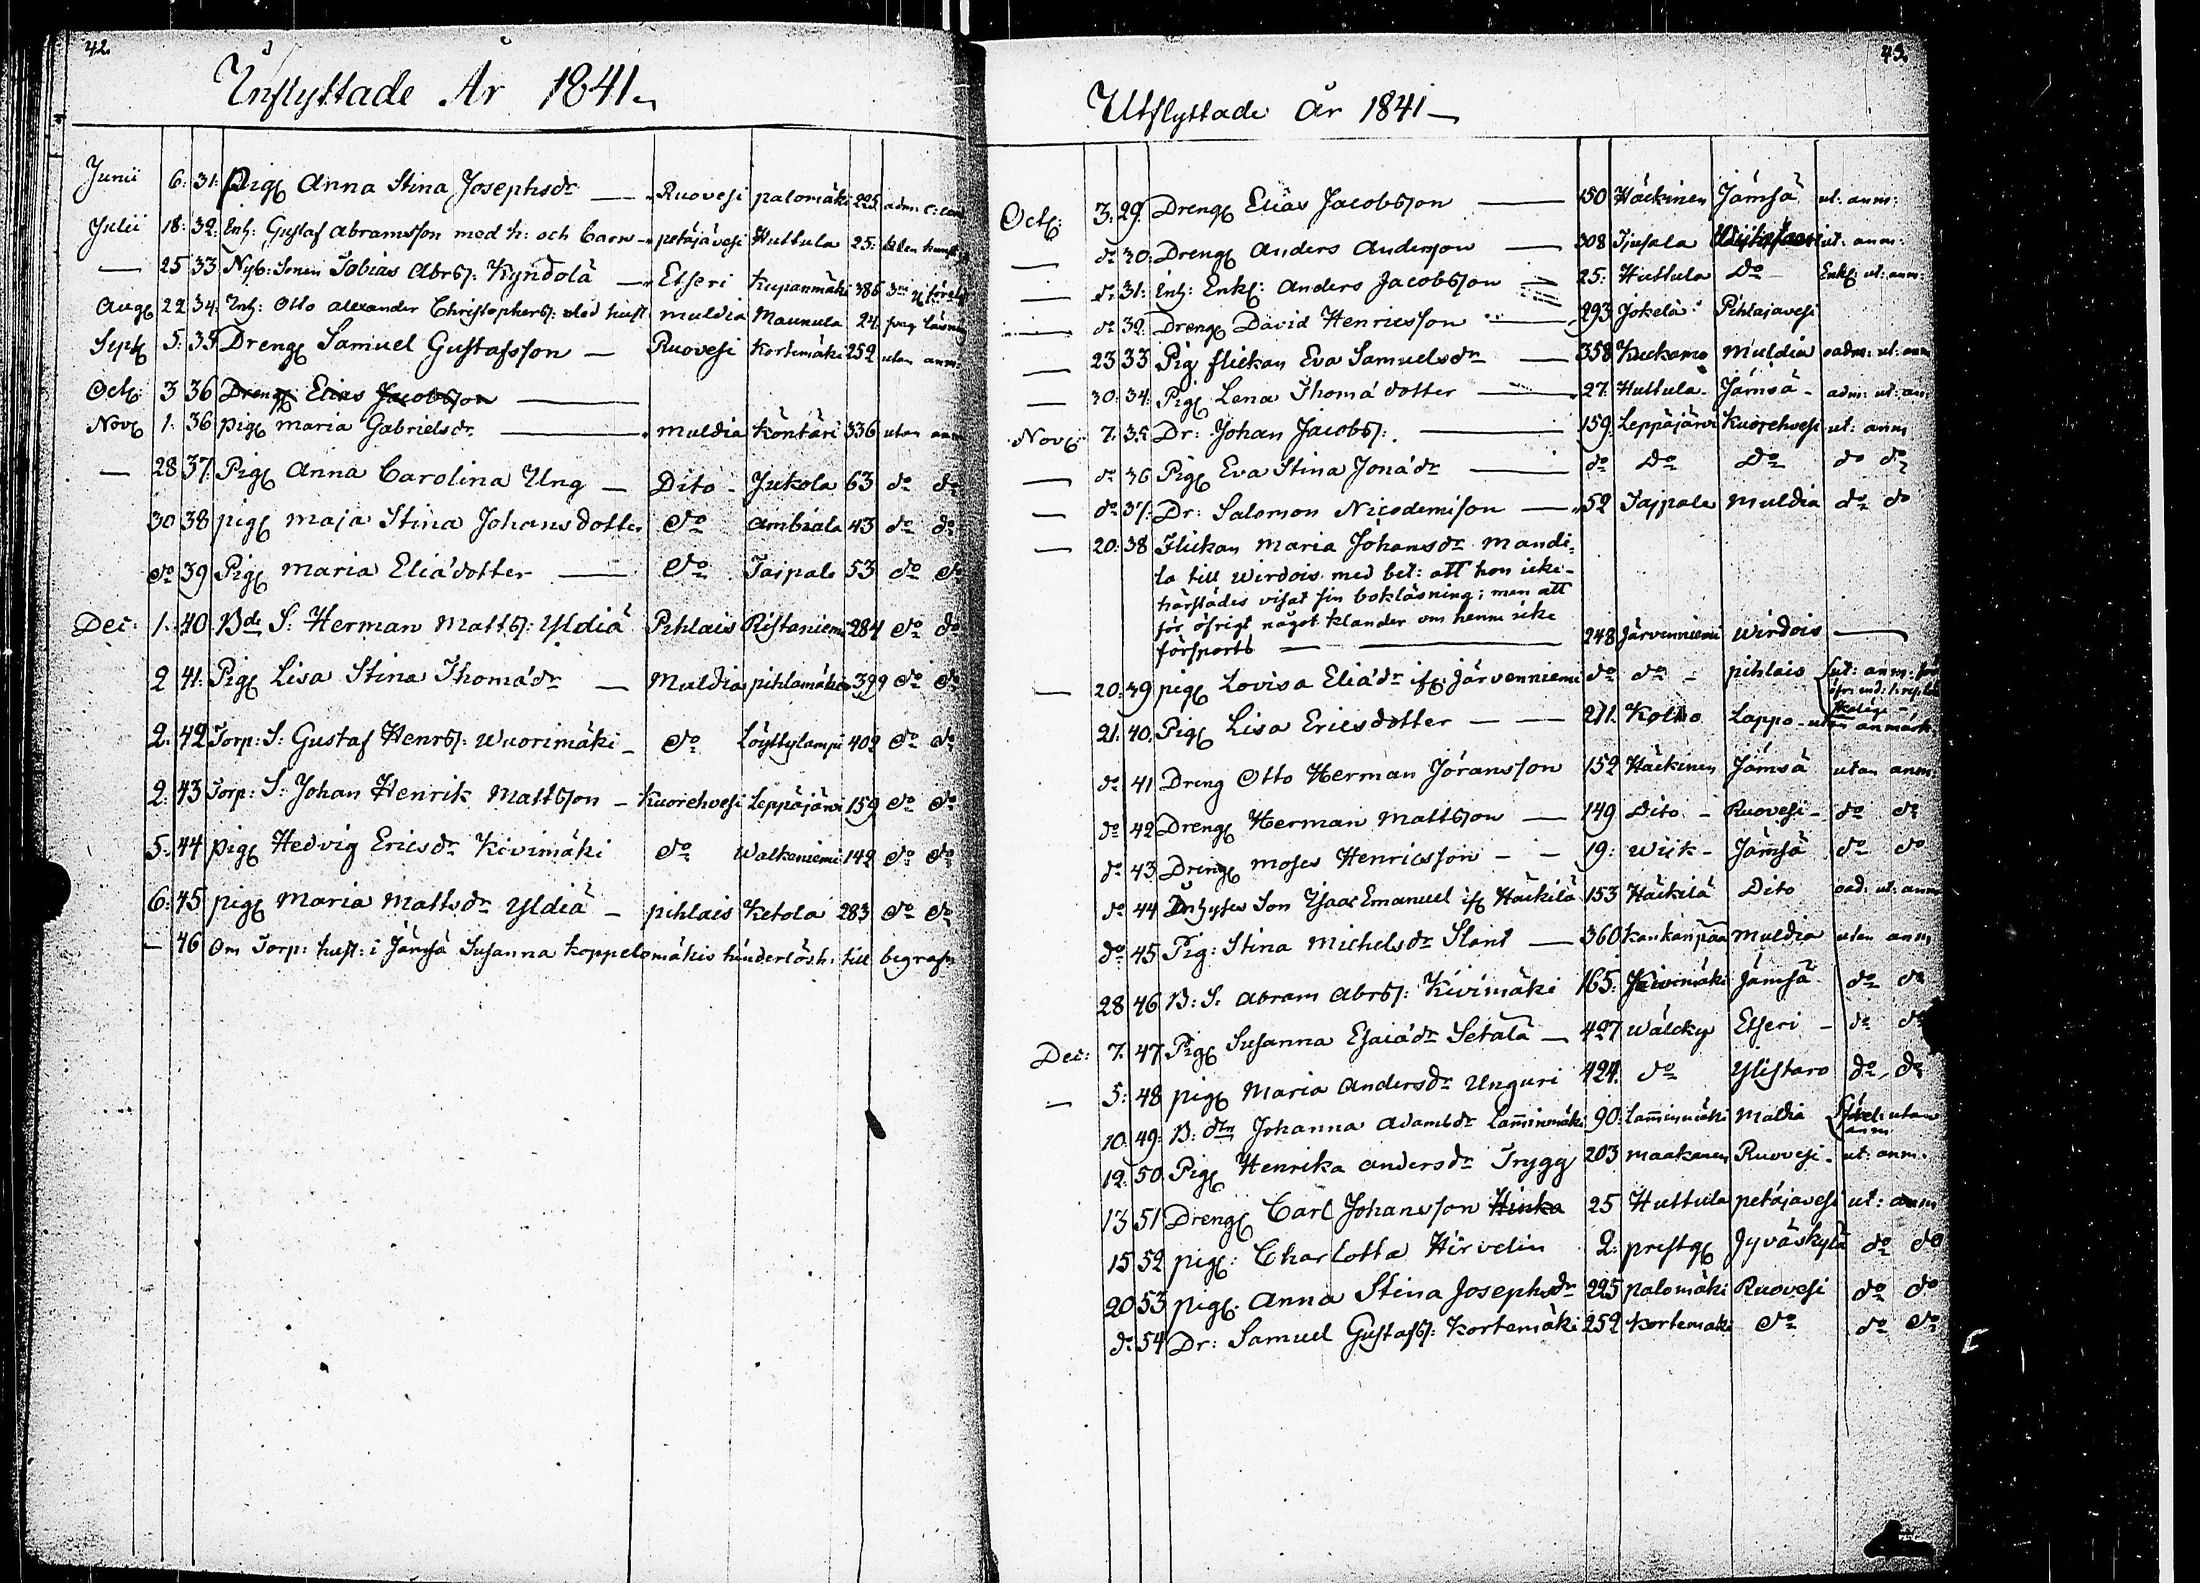 42.
Inflyttade År 1841
Junii 6: 31: Pig Anna Stina Josephsdr Ruovesi palomäki 225 adm:
Julii 18: 32: Inh: Gustaf Abramsson med h: och barn petäjävesi Huttula 25:
— 25 33 Nyb: Sonen Tobias Abrss: Kyndolä Etseri Kupanmäki 386
Aug 22 34: Inh: Otto Alexander Christopherss: med hust muldia Maunula 24
Sept 5: 35 Dreng Samuel Gustafsson — Ruovesi Kortemäki 252 utan anm:
Oct: 3 36 Dreng Elias Jacobsson —
Nov 1: 36 pig maria Gabrielsdr — muldia Köntäri 336 utan anm
— 28 37 Pig Anna Carolina Ung — Dito Jukola 63 do do
30 38 pig maja Stina Johansdotter do ambiala 43 do do
do 39 Pig maria Eliædotter — do Taipale 53 do do
Dec: 1: 40 Bde S: Herman Mattss: Yldiä Pihlais Ristaniemi 284 do do
2 41: Pig Lisa Stina Thomædr — Muldia pihlamäki 399 do do
2: 42 Torp: S: Gustaf Henrss: Wuorimäki — do Löyttylampi 402 do do
2: 43 Torp: S: Johan Henrik Mattsson — Kuorehvesi Leppäjärvi 159 do do
5: 44 pig Hedvig Ericsdr Kivimäki do Walkeniemi 142 do do
6: 45 pig Maria Mattsdr Yldiä — pihlais Ketola 283 do do
— 46 Om Torp: hust: i Jämsä Susanna Koppelomäkis hinderlösh: till begrafn
43.
Utflyttade År 1841 —
Oct: 3: 29 Dreng Elias Jacobsson — 150 Häckinen Jämsä ut: anm:
— do 30: Dreng Anders Andersson — 308 Tiusala ut: anm:
— do 31: Inh: Enkl: Anders Jacobsson — 25: Huttula do Enkl: ut: anm:
— do 32 Dreng David Henricsson 293 Jokela Pihlajavesi
— 23 33 Pig flickan Eva Samuelsdr — 358 Kuckamo Muldia oadm: ut: anm
— 30: 34: Pig Lena Thomædotter — 27: Huttula Jämsä adm: ut: an
Nov: 7: 35 Dr: Johan Jacobss: — 159 Leppäjärvi Kuorehvesi ut: anm
— do 36 Pig Eva Stina Jonædr — do do do do do
— do 37: Dr: Salomon Nicodemisson — 52 Tajpale Muldia do do
— 20: 38 Flickan Maria Johansdr Mandi:
la till Wirdois med bet: att hon icke
härstädes visat sin bokläsning; men att
för öfrigt något klander om henne icke
försports — 248 Järvenniemi Wirdois —
— 20: 39 pig Lovisa Eliædr if: Järvenniemi do do — pihlais ut: anm: för
21: 40: Pig Lisa Ericsdotter — — 211: Kolho Lappo utan anmärk:
do 41 Dreng Otto Herman Jöransson 152 Häckinen Jämsä utan anm:
do 42 Dreng Herman Mattsson — 149 Dito — Ruovesi do do
do 43 Dreng Moses Henricsson — — 19: Wiik — Jämsä do do
do 44 Inhyses Son Isaac Emanuel if Häckilä 153 Häckilä Dito oad: ut: anm
do 45 Pig: Stina Michelsdr Slant — 360 Kankanpää Muldia utan anm
28 46 B: S: Abram Abrss: Kivimäki 165: Kivimäki Jämsä do do
Dec: 7: 47 Pig Susanna Esaiædr Setälä — 427 Wälcky Etseri — do do
— 5: 48 pig Maria Andersdr Unguri 424: do Ylistaro do do
10: 49: B: dtn Johanna Adamsdr Lamminmäki 90: Lamminmäki Maldia utan anm
12: 50 Pig Henrika Andersdr Trygg 203 maakanen Ruovesi ut: anm.
13 51 Dreng Carl Johansson Hinka 25 Huttula petäjavesi ut: anm
15 52 pig: Charlotta Hirvelin 2: prestg Jyväskylä do do
20 53 pig: Anna Stina Josephsdr 225 palomäki Ruovesi do do
do 54 Dr: Samuel Gustafss: Kortemäki 252 Kortemäki do do do